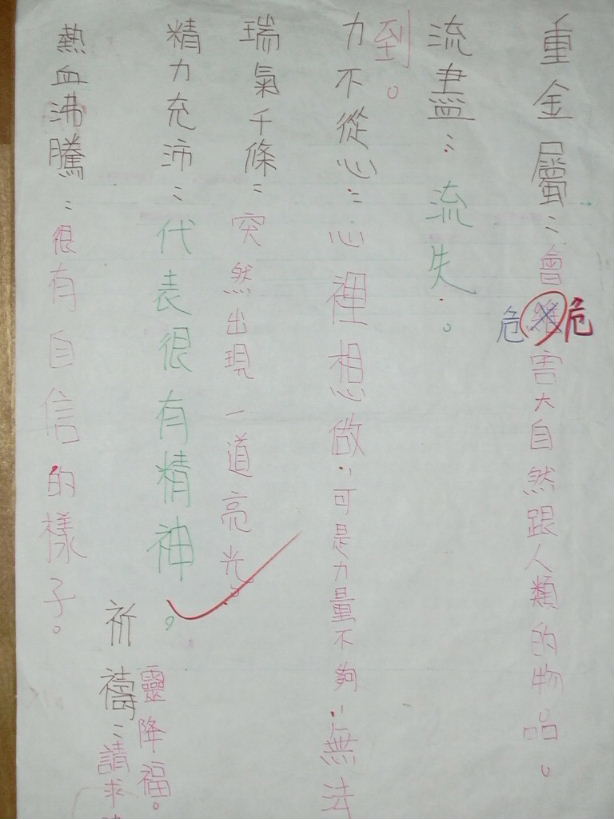 重金屬：會危害大自然跟人類的物品。
危
流盡：流失。
力不從心：心裡想做，可是力量不夠，無法
到。
瑞氣千條：突然出現一道亮光。
精力充沛：代表很有精神。
祈禱：請求
靈降福。
熱血沸騰：很有自信的樣子。